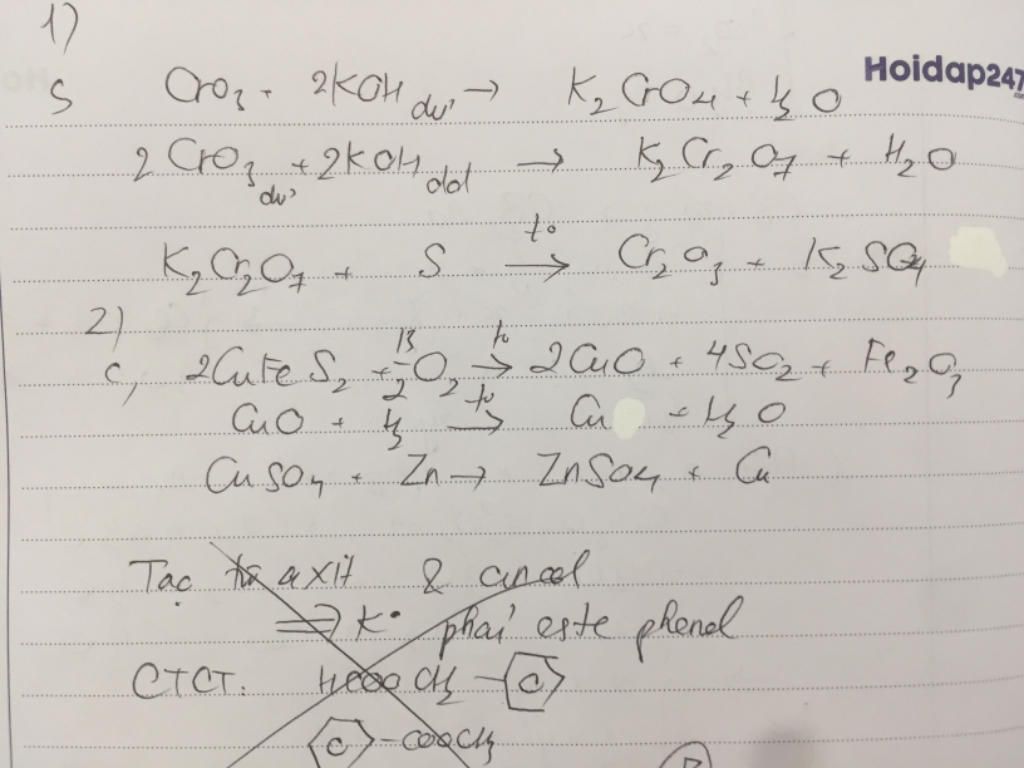 1)
Hoidap247
.com
S CrO3 + 2KOH dư → K2CrO4 + H2O
2CrO3 dư + 2KOH dd → K2Cr2O7 + H2O
K2Cr2O7 + S t° → Cr2O3 + K2SO4
2)
c, 2CuFeS2 + 13/2 O2 t° → 2CuO + 4SO2 + Fe2O3
CuO + H2 t° → Cu + H2O
CuSO4 + Zn → ZnSO4 + Cu
Tạo từ axit & ancol
⇒ K° phải este phenol
CTCT: HCOOCH2-
-COOCH3